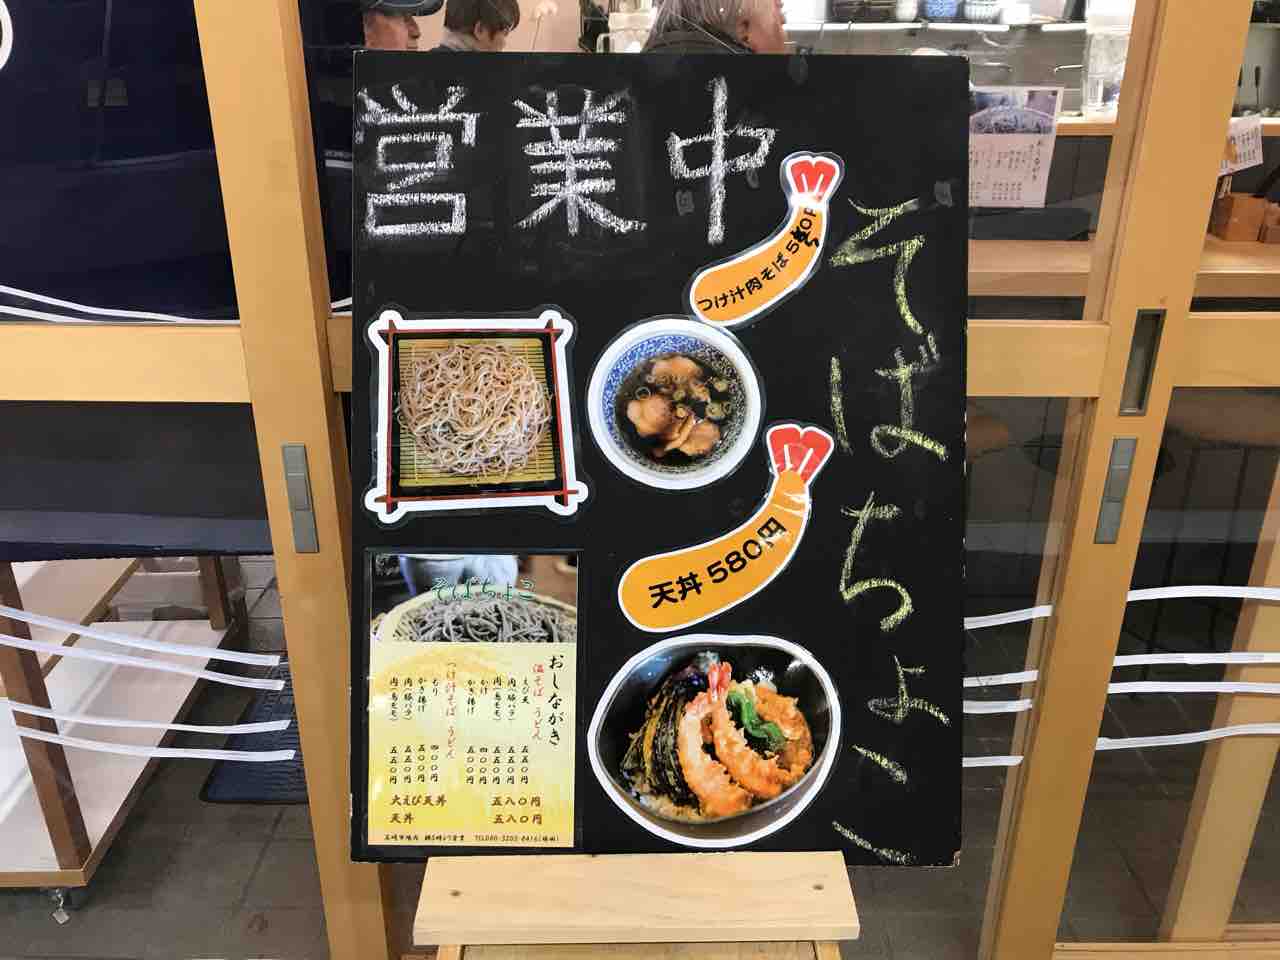 営業中
そばちょこ
つけ汁肉そば 550円
天丼 580円
そばちょこ
おしながき
温そば うどん
えび天 五五〇円
肉(豚バラ) 五五〇円
肉(鳥モモ) 五五〇円
かけ 四〇〇円
かき揚げ 五〇〇円
つけ汁そば うどん
もり 四〇〇円
かき揚げ 五〇〇円
肉(豚バラ) 五五〇円
肉(鳥モモ) 五五〇円
大えび天丼 五八〇円
天丼 五八〇円